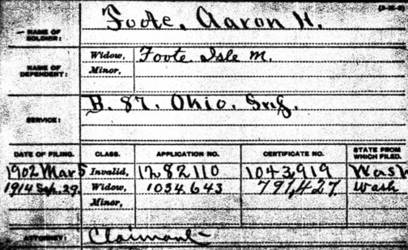 (3-15-3)
NAME OF SOLDIER: Foote, Aaron H.
NAME OF DEPENDENT: Widow, Foote Isle M.
Minor,
SERVICE: B. 87. Ohio. Inf.
DATE OF FILING. CLASS. APPLICATION NO. CERTIFICATE NO. STATE FROM WHICH FILED.
1902 Mar 5 Invalid, 1282110 1043919 Wash
1914 Sep. 29. Widow, 1034.643 791,427 Wash
Minor,
ATTORNEY: Claimant